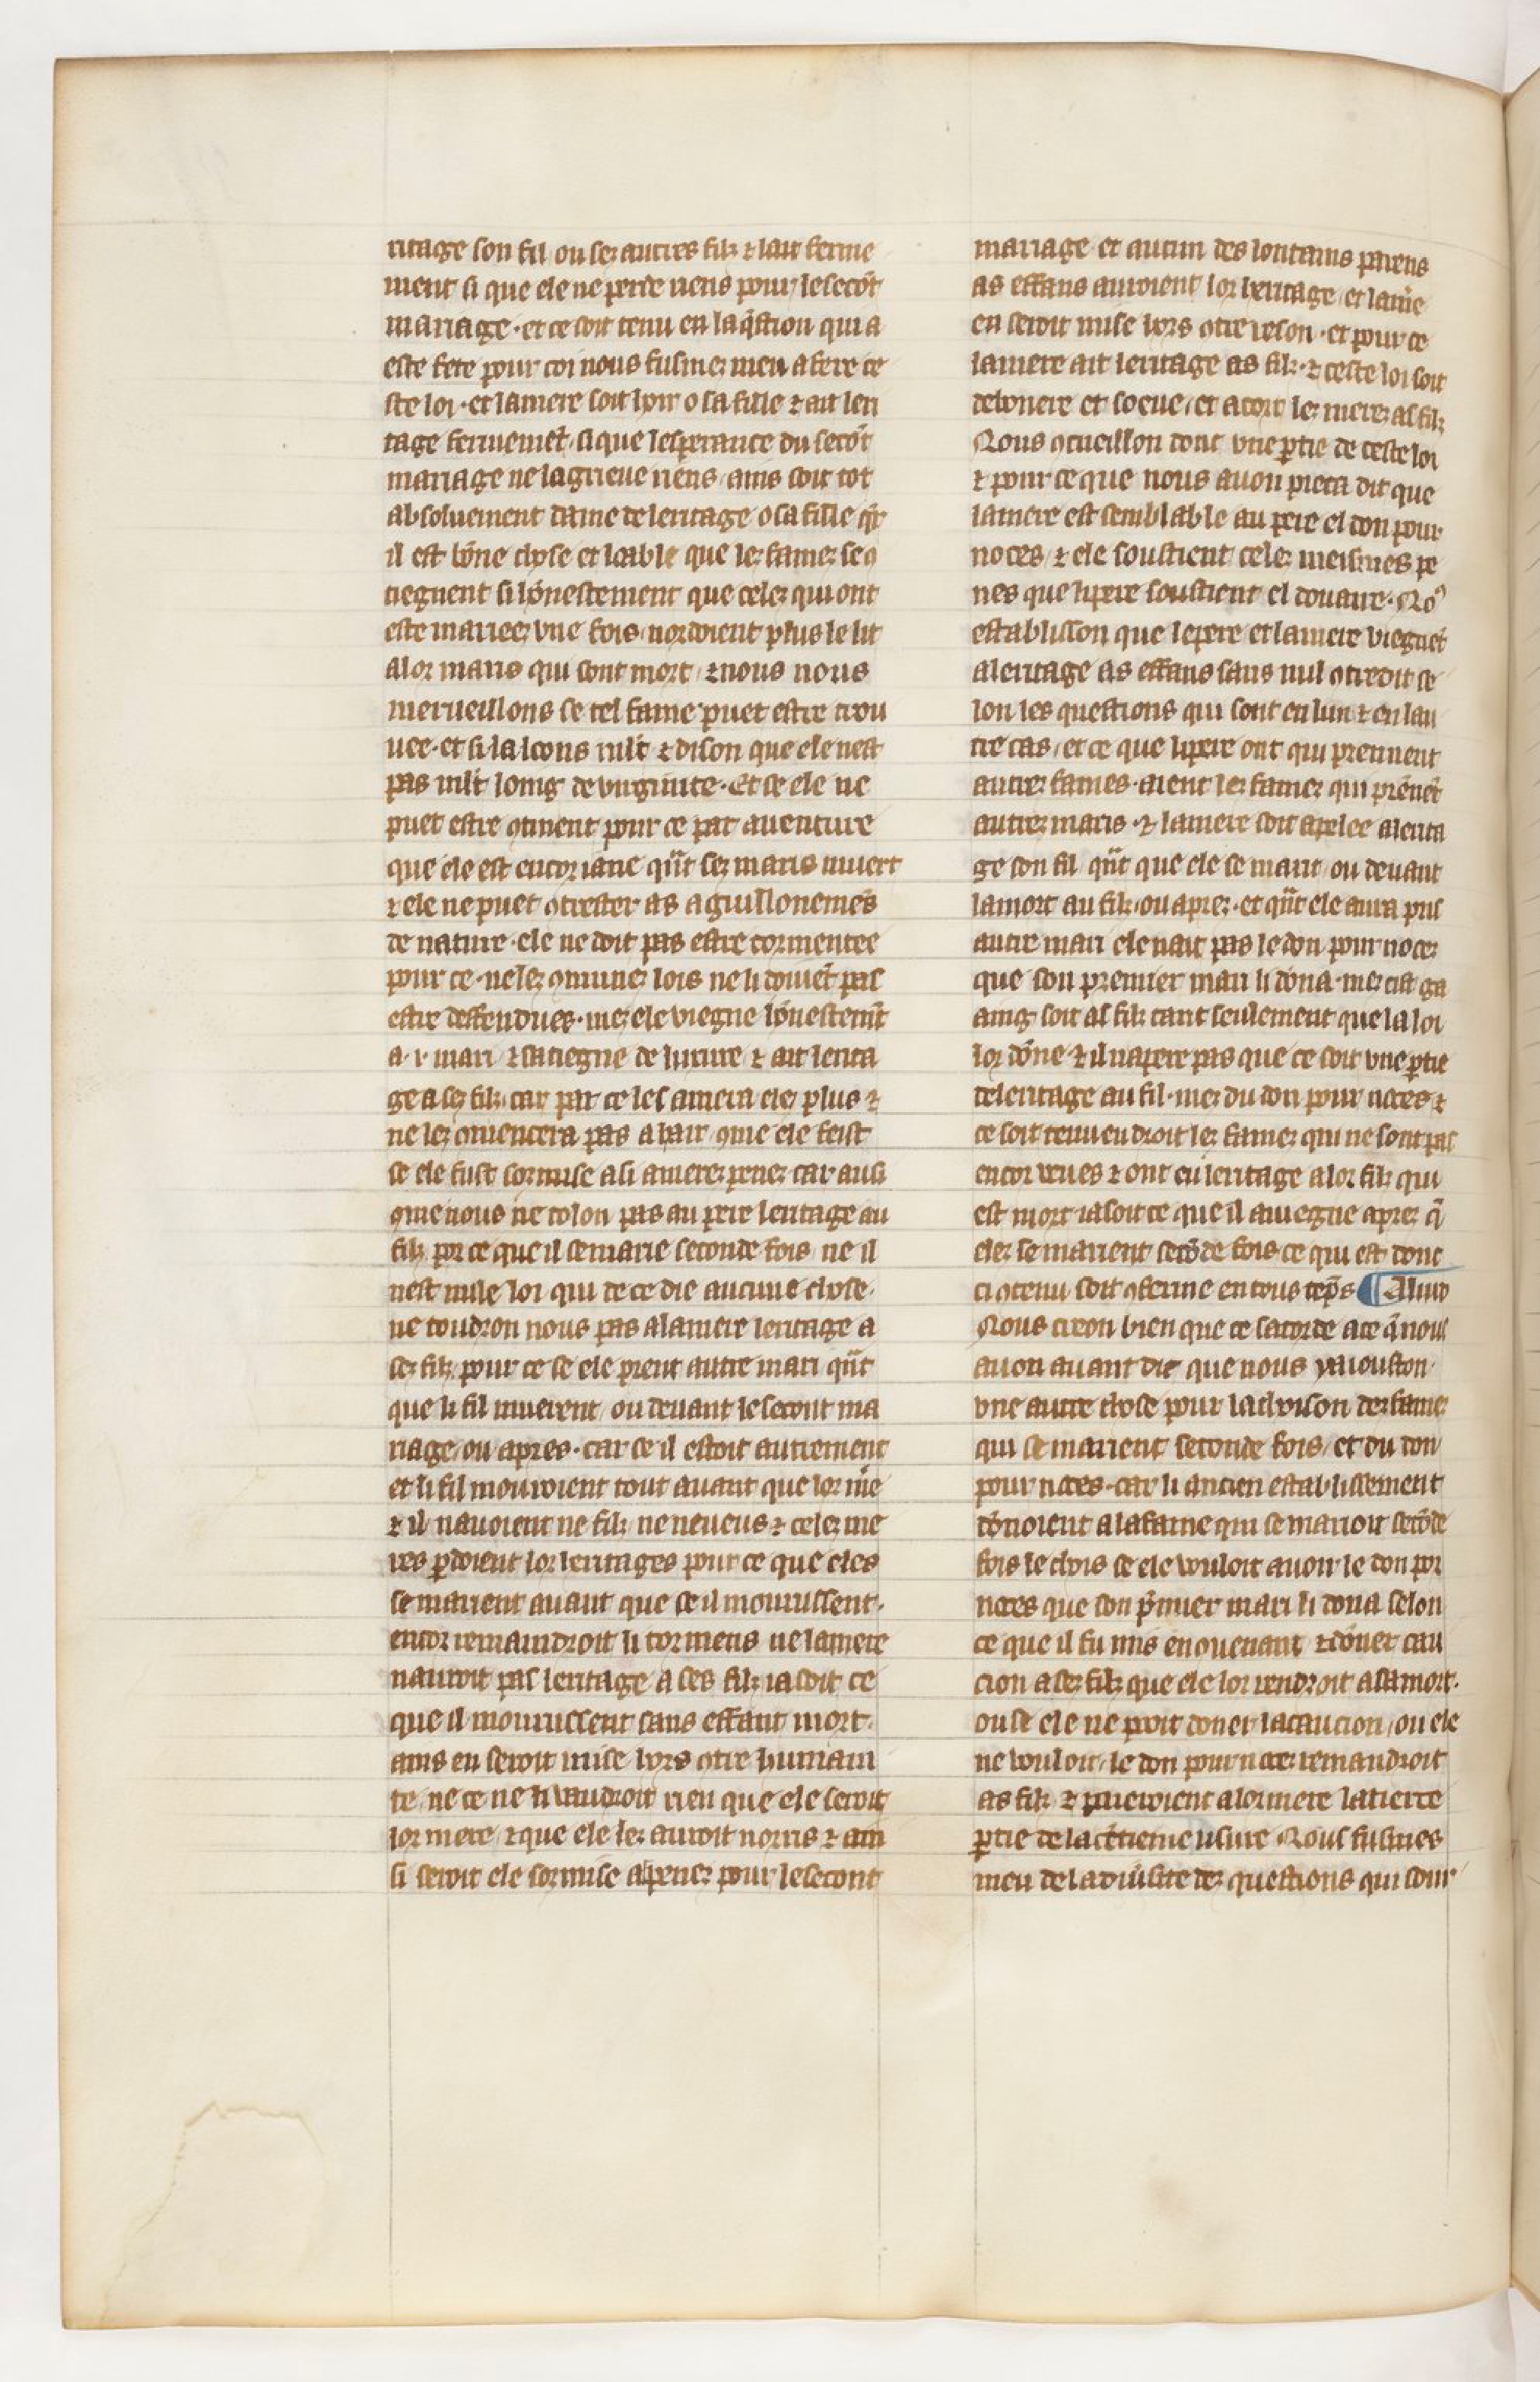 ritage son fil ou sez autres filz ⁊ lait ferme
ment si que ele ne perde riens pour le secōt
mariage · et ce soit tenu en la q̄stion qui a
este fete pour coi nous fusmez meu a fere ce
ste loi · et la mere soit hoir o sa fille ⁊ ait leri
tage fermemēt si que lesperance du secōt
mariage ne la grieue riens ains soit tot
absoluement dame de leritage o sa fille q̄r
il est bōne chose et loable que lez famez se ꝯ
tiegnent si hōnestement que celez qui ont
este mariees vne fois nordoient plus le lit
a lor maris qui sont mort ⁊ nous nous
merueillons se tel fame puet estre trou
uee · et si la loons mlt ⁊ dison que ele nest
pas mlt loing de virginite · Et se ele ne
puet estre ꝯtinent pour ce par auenture
que ele est encor iane qn̄t sez maris muert
⁊ ele ne puet ꝯtrester as aguillonemēs
de nature · ele ne doit pas estre tormentee
pour ce · ne lez ꝯmunez lois ne li doiuēt pas
estre deffendues · mez ele viegne hōnestemēt
a · i · mari ⁊ satiegne de luxure ⁊ ait lerita
ge a sez filz · car par ce les amera elez plus ⁊
ne lez ꝯmencera pas a hair ꝯme ele feist
se ele fust sormise a si amerez penez car ausi
ꝯme nous ne tolon pas au pere leritage au
filz por ce que il se marie seconde fois ne il
nest nule loi qui de ce die aucune chose ·
ne toudron nous pas a la mere leritage a
sez filz pour ce se ele prent autre mari qn̄t
que li fil muerent ou deuant le secont ma
riage ou apres · car se il estoit autrement
et li fil mouroient tout auant que lor mē
⁊ il nauoient ne filz ne neueus ⁊ celez me
res ꝑdoient lor leritages pour ce que eles
se marient auant que se il mourussent ·
encor remaindroit li tormens ne la mere
nauroit pas leritage a ses filz ia soit ce
que il mourussent sans effant mort ·
ains en seroit mise hors ꝯtre humani
te ne ce ne li vaudroit rien que ele seroit
lor mere ⁊ que ele lez auroit norris ⁊ ain
si seroit ele sormise a penez pour le secont
mariage et aucun des lontains parens
as effans auroient lor heritage et la mē
en seroit mise hors ꝯtre reson · et pour ce
la mere ait leritage as filz · ⁊ ceste loi soit
debonere et soeue et acort lez merez as filz
Nous ꝯcueillon dont vne ꝑtie de ceste loi
⁊ pour ce que nous auon pieca dit que
la mere est semblable au pere el don pour
noces ⁊ ele soustient celez meismes pe
nes que li pere soustient el douaire · Noꝰ
establisson que le pere et la mere viegnēt
a leritage as effans sans nul ꝯtredit se
lon les questions qui sont en lun ⁊ en lau
tre cas et ce que li pere ont qui prennent
autrez fames · aient lez famez qui prēnēt
autrez maris · ⁊ la mere soit apelee a lerita
ge son fil qn̄t que ele se marit ou deuant
la mort au filz ou aprez · et qn̄t ele aura pris
autre mari ele nait pas le don pour nocez
que son premier mari li dōna · mez cist ga
aing soit as filz tant seulement que la loi
lor dōne ⁊ il napere pas que ce soit vne ꝑtie
de leritage au fil · mez du don pour noces ⁊
ce soit tenu en droit lez famez qui ne sont pas
encor veues ⁊ ont eu leritage a lor filz qui
est mort ia soit ce que il auiegne aprez q̄
elez se marient secōde fois ce qui est donc
ci ꝯtenu soit ꝯferme en tous tēps ¶ Aliud
Nous creon bien que ce sacorde a ce q̄ nous
auon auant dit que nous y aiouston ·
vne autre chose pour lachoison dez fame
qui se marient seconde fois et du don
pour noces · car li ancien establissement
dōnoient a la fame qui se marioit secōde
fois le chois se ele vouloit auoir le don por
noces que son p̄mier mari li dona selon
ce que il fu mis en ꝯuenant ⁊ dōner cau
cion a sez filz que ele lor rendroit a sa mort ·
ou se ele ne poit doner la caucion ou ele
ne vouloit · le don pour nocez remandroit
as filz ⁊ paieroient a lor mere la tierce
ꝑtie de la cētieme usure Nous fusmes
meu de la diūsite dez questions qui sour